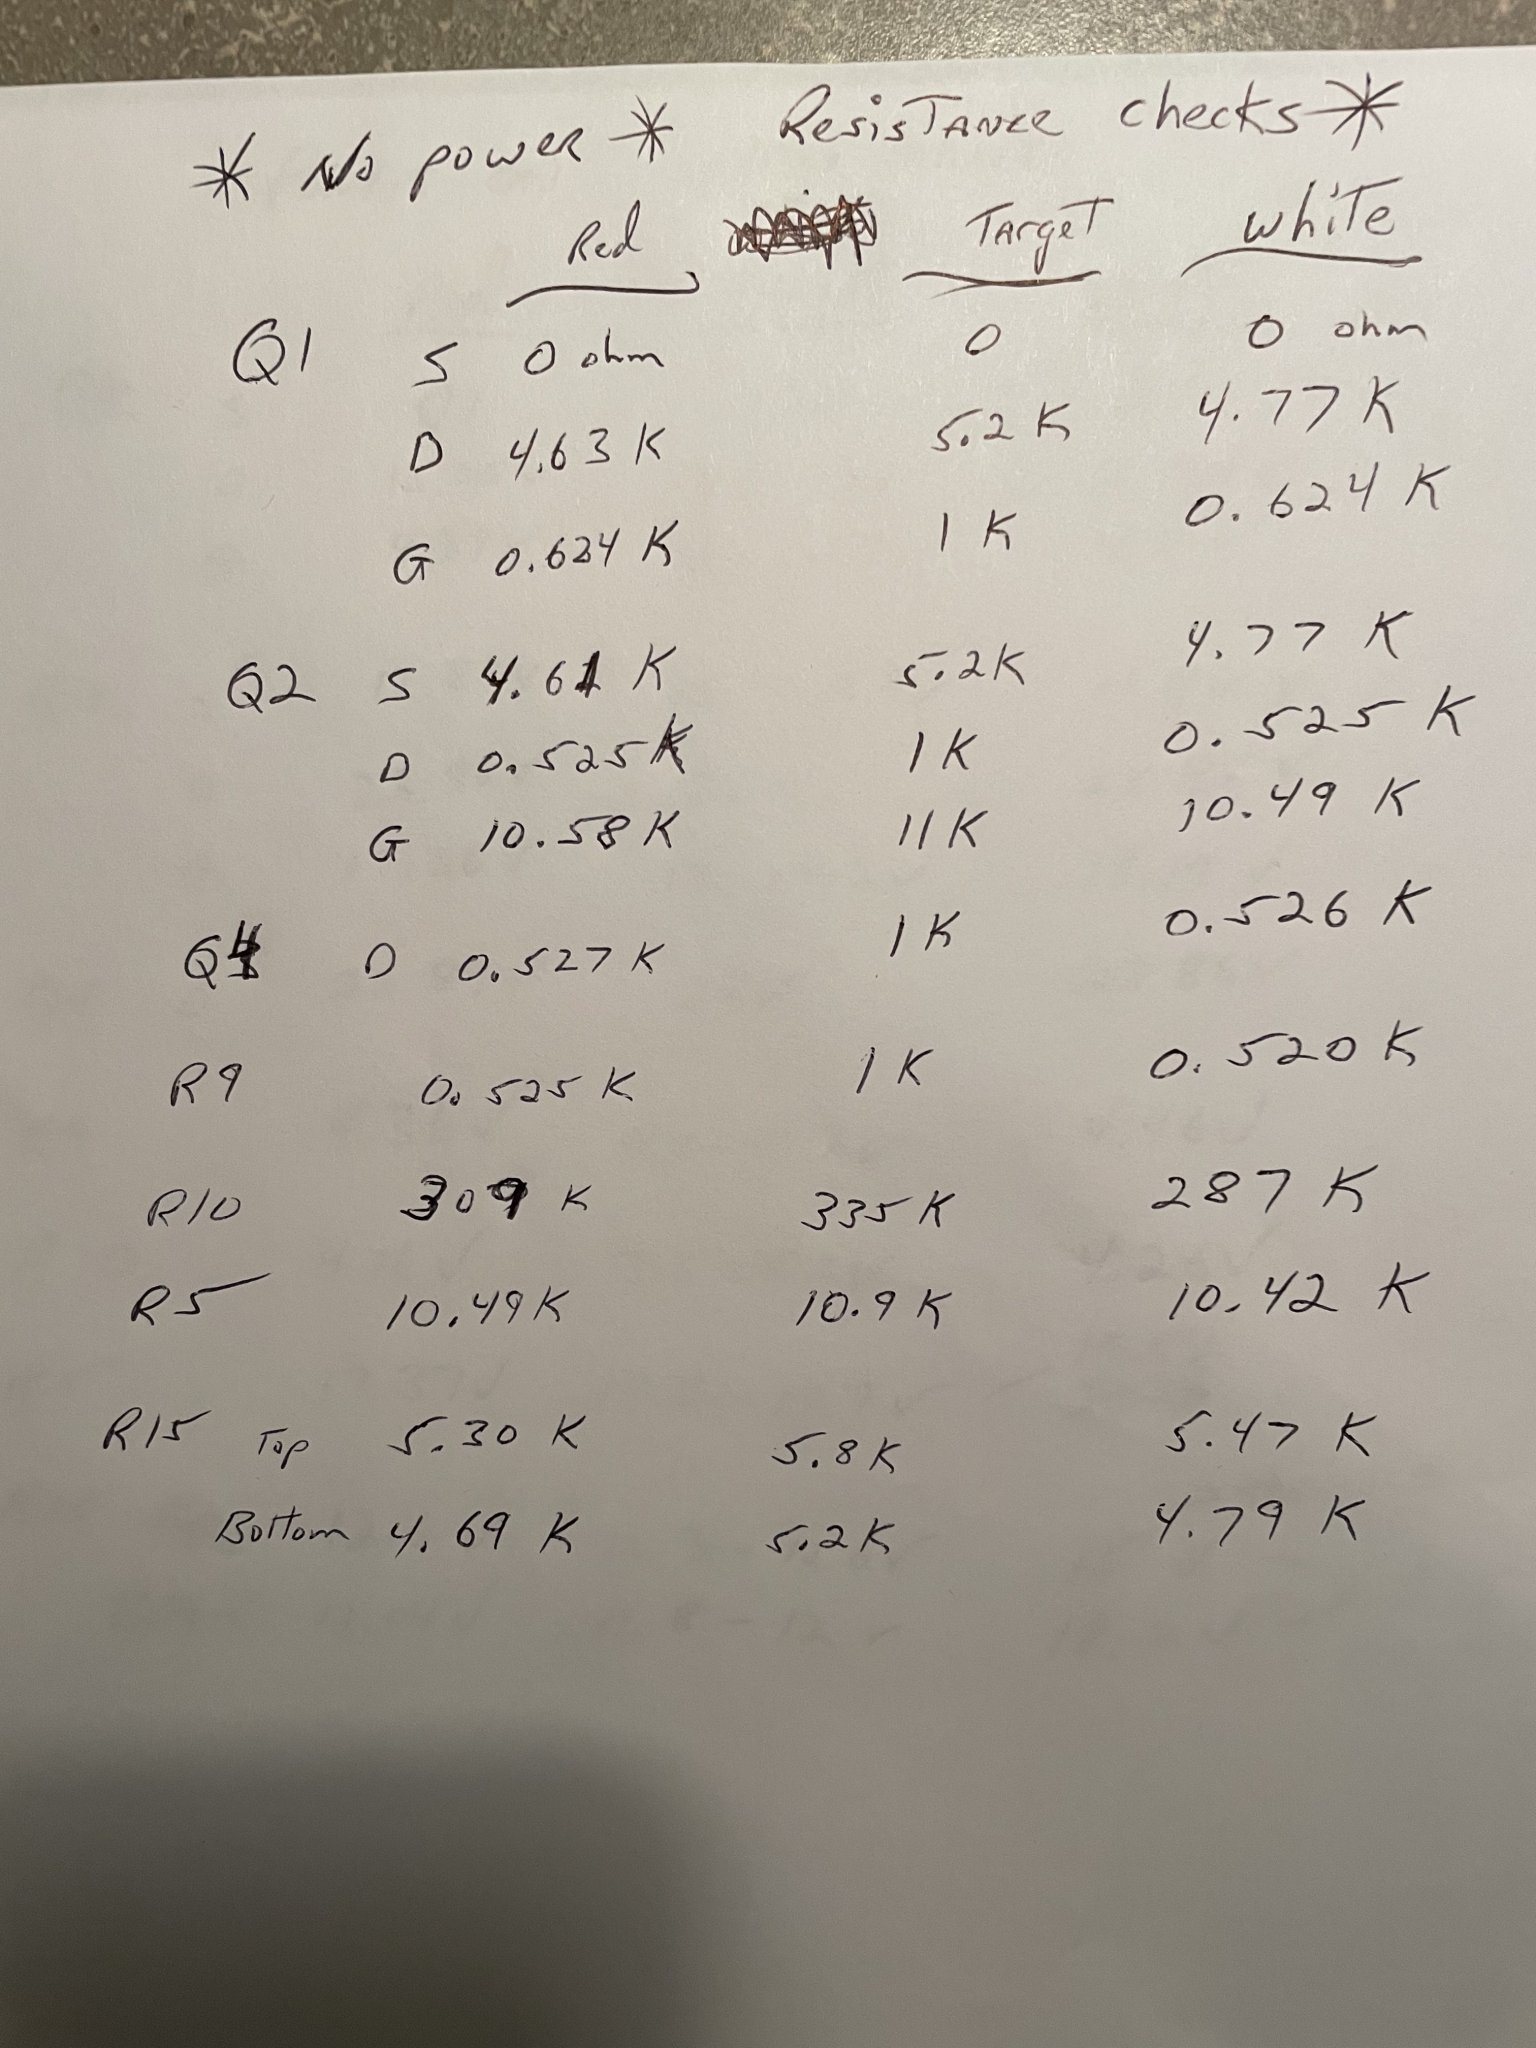 * No power * Resistance checks *
Red Target White
Q1 S 0 ohm 0 0 ohm
D 4.63 K 5.2 K 4.77 K
G 0.624 K 1 K 0.624 K
Q2 S 4.61 K 5.2K 4.77 K
D 0.525K 1 K 0.525 K
G 10.58 K 11 K 10.49 K
Q4 D 0.527 K 1 K 0.526 K
R9 0.525 K 1 K 0.520 K
R10 309 K 335 K 287 K
R5 10.49 K 10.9 K 10.42 K
R15 Top 5.30 K 5.8 K 5.47 K
Bottom 4.69 K 5.2 K 4.79 K